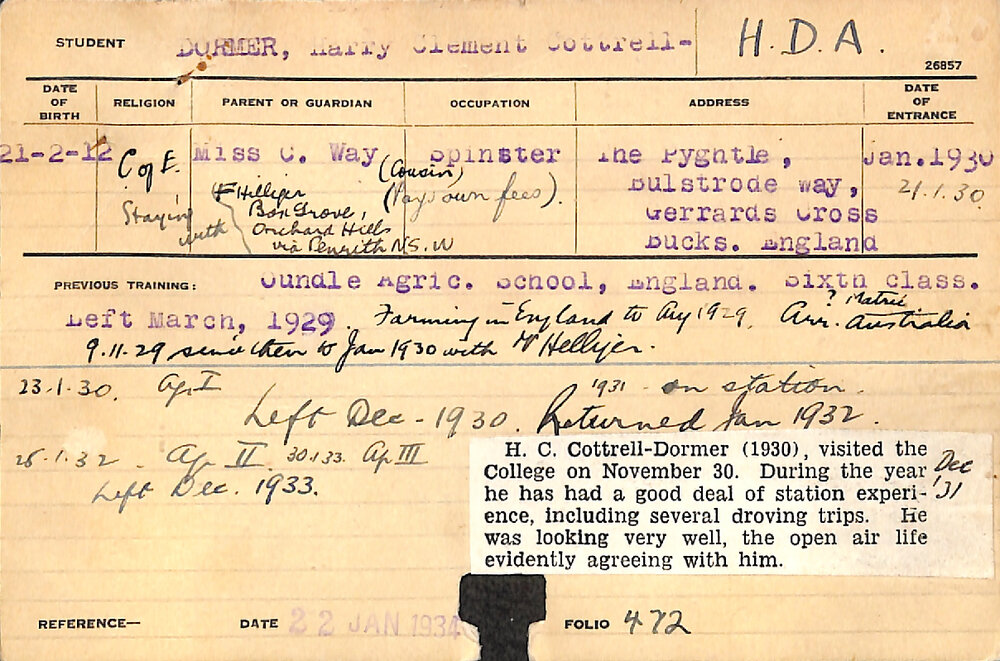 STUDENT DORMER, Harry Clement Cottrell- H.D.A.
26857
DATE OF BIRTH RELIGION PARENT OR GUARDIAN OCCUPATION ADDRESS DATE OF ENTRANCE
21-2-12 C of E. Miss C. Way (Cousin) Spinster The Pyghtle, Jan.1930
(Pays own fees). Bulstrode Way, 21.1.30.
Staying with Hilliger Gerrards Cross
Box Grove, Bucks. England
Orchard Hills
via Penrith N.S.W
PREVIOUS TRAINING: Oundle Agric. School, England. Sixth class.
? Matric
Left March, 1929. Farming in England to Aug 1929. Arr. Australia
9.11.29 since then to Jan 1930 with Mr Hellijer.
23.1.30. Ag I 1931 - on station.
Left Dec - 1930. Returned Jan 1932.
1.32. Ag II 30.1.33. Ag III
Left Dec. 1933.
H. C. Cottrell-Dormer (1930), visited the
College on November 30. During the year
he has had a good deal of station experi-
ence, including several droving trips. He
was looking very well, the open air life
evidently agreeing with him.
Dec '31
REFERENCE— DATE 22 JAN 1934 FOLIO 472